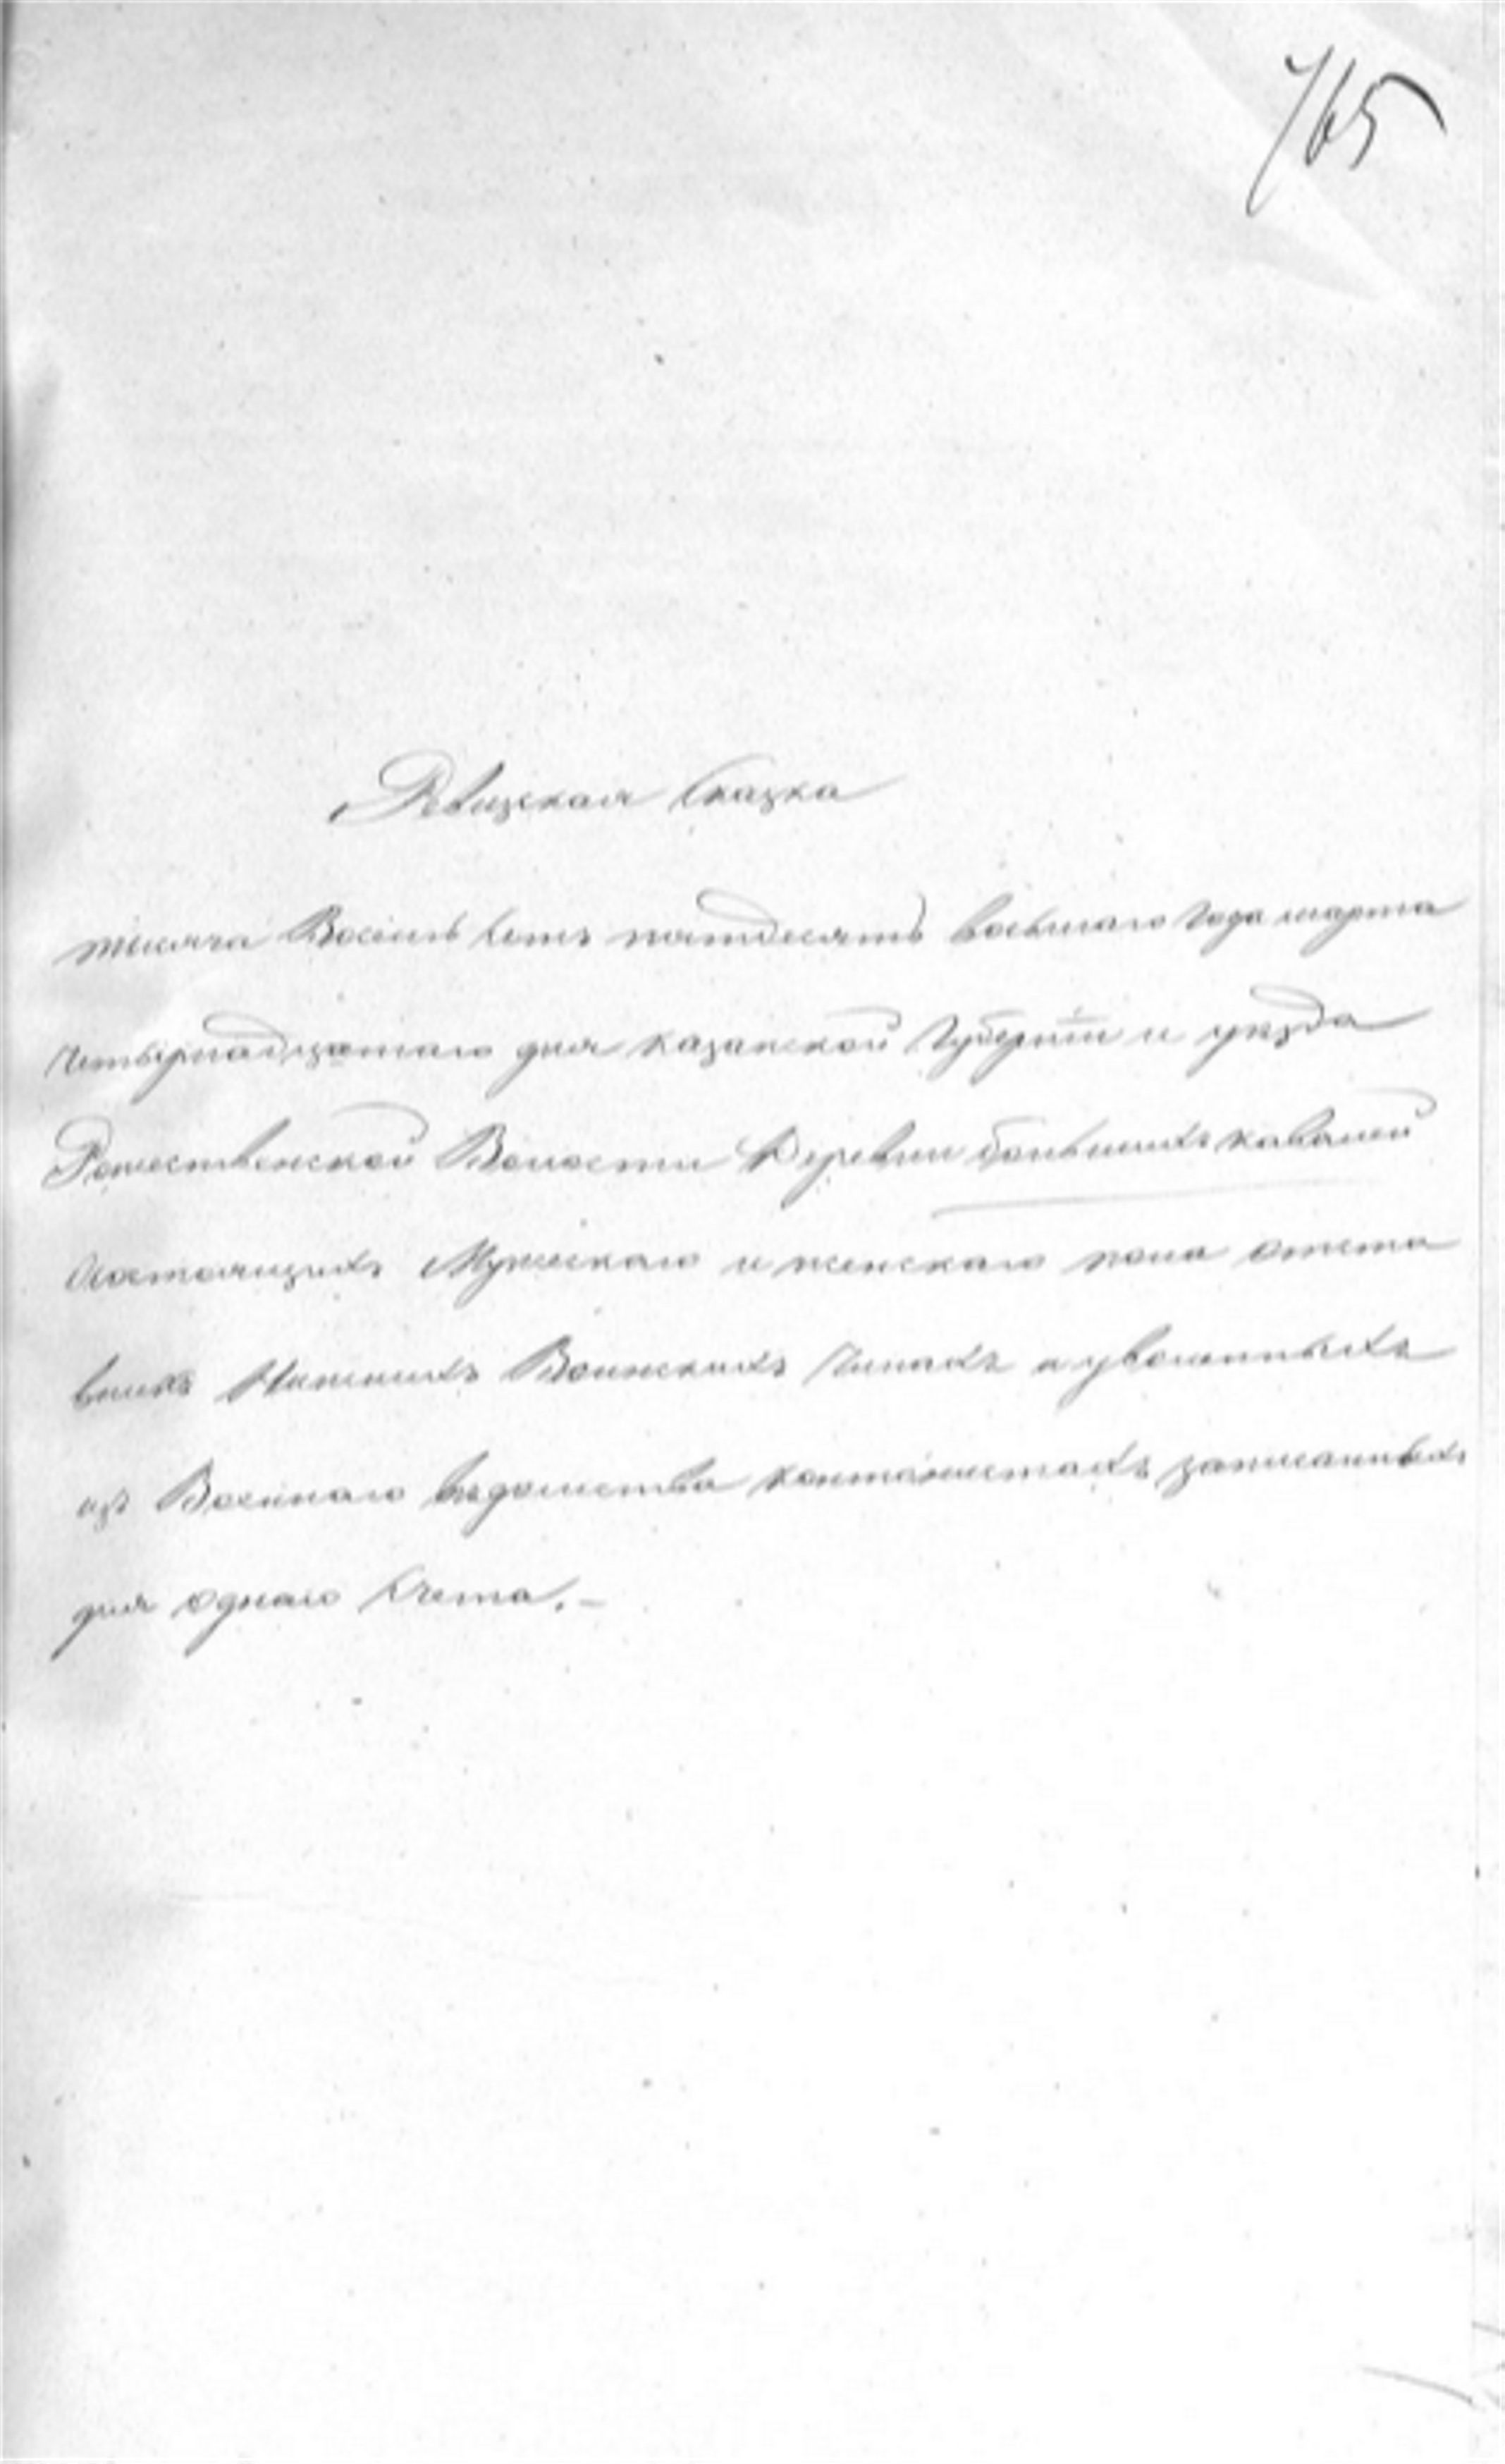 765
Ревизская Сказка
тысяча Восемь Сотъ пятдесятъ восьмаго Года марта
Четырнадцатаго дня казанской Губерніи и уезда
Рожественской Волости Деревни большихъ кабаней
Состоящихъ Мужескаго и женскаго пола отста
вныхъ Нижнихъ Воинскихъ Чинахъ и уволенныхъ
изъ Военнаго ведомства кантонистахъ записанныхъ
для однаго Счета.-